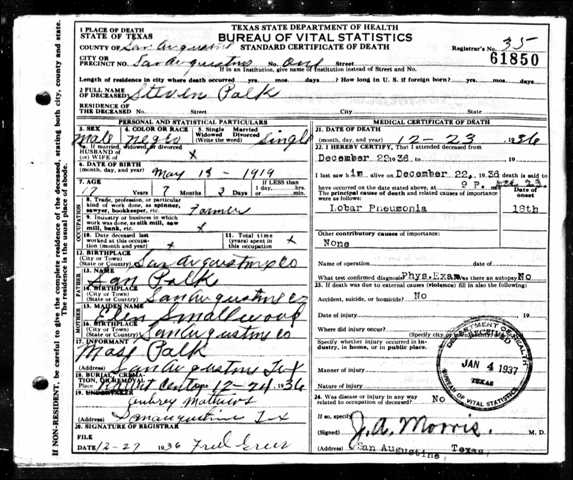 TEXAS STATE DEPARTMENT OF HEALTH
BUREAU OF VITAL STATISTICS
STANDARD CERTIFICATE OF DEATH
1 PLACE OF DEATH
STATE OF TEXAS
COUNTY OF San Augustine
Registrar's No. 35
61850
CITY OR PRECINCT NO. San Augustine No. One Street
If an Institution, give name of Institution instead of Street and No.
Length of residence in city where death occurred yrs. mos. days. How long in U. S. if foreign born? yrs. mos. days.
2 FULL NAME OF DECEASED Steven Polk
RESIDENCE OF THE DECEASED No. Street City State
PERSONAL AND STATISTICAL PARTICULARS
3. SEX Male
4. COLOR OR RACE Negro
5. Single Married Widowed Divorced (Write the word) Single
6. If married, widowed, or divorced
HUSBAND OF (or) WIFE OF x
6. DATE OF BIRTH
(month, day, and year) May 18 - 1919
7. AGE 17 Years 7 Months 5 Days IF LESS than 1 day, hrs. min.
OCCUPATION
8. Trade, profession, or particular kind of work done, as spinner, sawyer, bookkeeper, etc. Farmer
9. Industry or business in which work was done, as silk mill, saw mill, bank, etc. x
10. Date deceased last worked at this occupation (month and year) x
11. Total time (years) spent in this occupation x
12. BIRTHPLACE
(City or Town)
(State or Country) San Augustine co
FATHER
13. NAME San Polk
14. BIRTHPLACE
(City or Town)
(State or Country) San Augustine co
MOTHER
15. MAIDEN NAME Smallwood
16. BIRTHPLACE
(City or Town)
(State or Country) San Augustine co
17. INFORMANT Mose Polk
(Address) San Augustine Tex
18. BURIAL, CREMATION, OR REMOVAL
12-24 1936
19. UNDERTAKER Aubrey Mathews
(Address) San Augustine Tx
20. SIGNATURE OF REGISTRAR
FILE DATE 12-27 1936 Fred Greer
MEDICAL CERTIFICATE OF DEATH
21. DATE OF DEATH
(month, day, and year) 12 - 23 1936
22. I HEREBY CERTIFY, That I attended deceased from
December 22 36. 19 to 19
I last saw him alive on December 22, 1936 death is said to
have occurred on the date stated above, at 9 P. m. Dec. 23
The principal cause of death and related causes of importance were as follows: Date of onset
Lobar Pneumonia 18th
Other contributory causes of importance:
None
Name of operation Date of
What test confirmed diagnosis? Phys.Exam Was there an autopsy No
23. If death was due to external causes (violence) fill in also the following:
Accident, suicide, or homicide? No
Date of injury 19
Where did injury occur?
(Specify city or town, county, and State)
Specify whether injury occurred in industry, in home, or in public place.
Manner of injury
Nature of injury
24. Was disease or injury in any way related to occupation of deceased? No
If so, specify
(Signed) J. A. Morris. M. D.
(Address) San Augustine, Texas.
DEPARTMENT OF HEALTH
JAN 4 1937
TEXAS
BUREAU OF VITAL STATISTICS